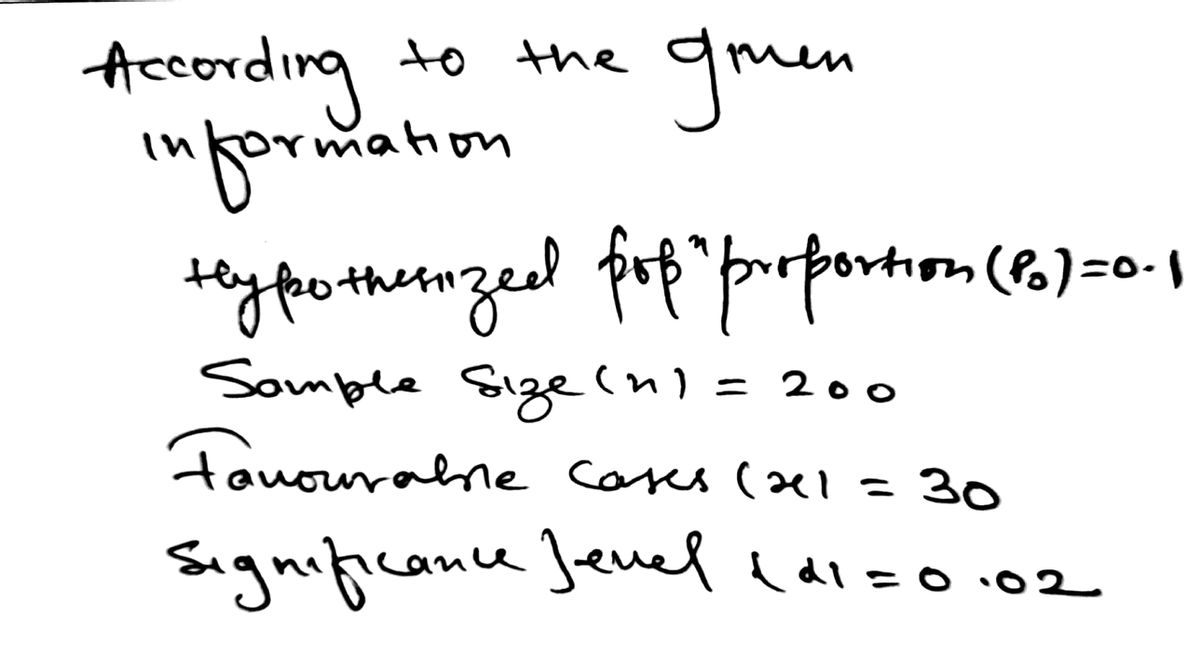 According to the given
information
Hypothesized popⁿ proportion (P₀) = 0.1
Sample Size (n) = 200
Favourable cases (x) = 30
Significance level (α) = 0.02